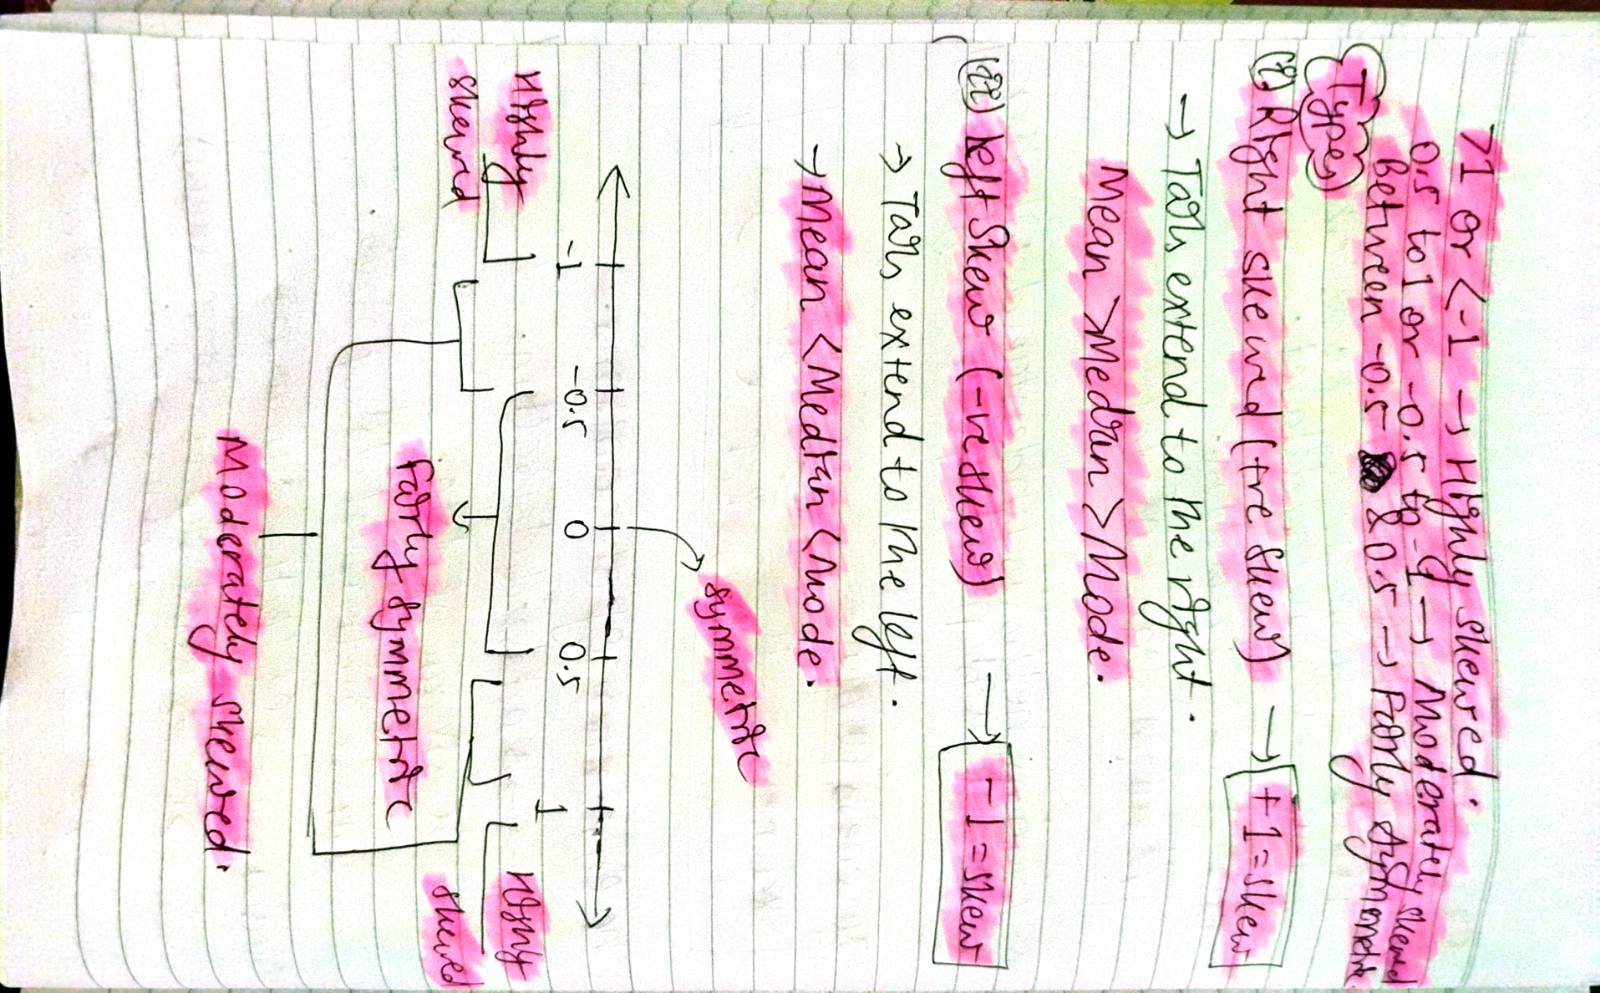 >1 or <-1 → Highly skewed.
0.5 to 1 or -0.5 to -1 → Moderately skewed
Between -0.5 & 0.5 → Fairly symmetric
Types
(i) Right skewed (+ve skew) → +1 = skew
→ Tails extend to the right.
Mean > Median > Mode.
(ii) Left skew (-ve skew) → -1 = skew
→ Tails extend to the left.
→ Mean < Median < Mode.
symmetric
-1 -0.5 0 0.5 1
Highly skewed
Highly skewed
Fairly symmetric
Moderately skewed.